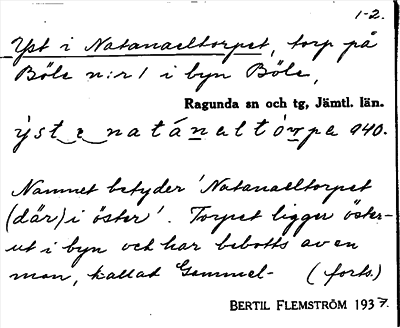 1-2.
Yst i Natanaeltorpet, torp på
Böle n:r 1 i byn Böle,
Ragunda sn och tg, Jämtl. län.
ỳst e natánaltórpa 940.
Namnet betyder 'Natanaeltorpet
(där) i öster'. Torpet ligger öster-
ut i byn och har bebotts av en
man, kallad Gammel- (forts.)
BERTIL FLEMSTRÖM 1937.